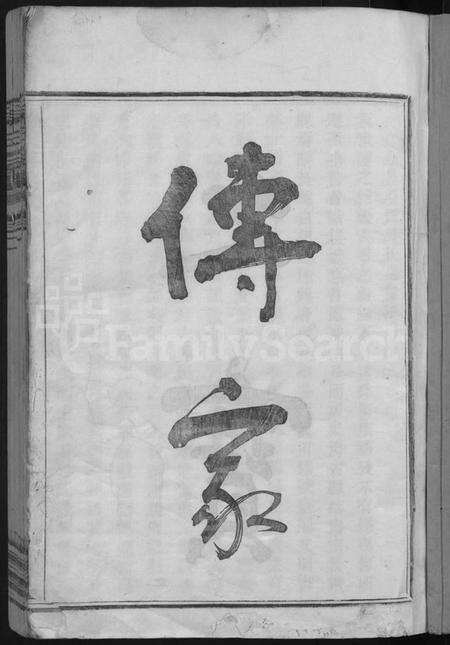 傳家
FamilySearch